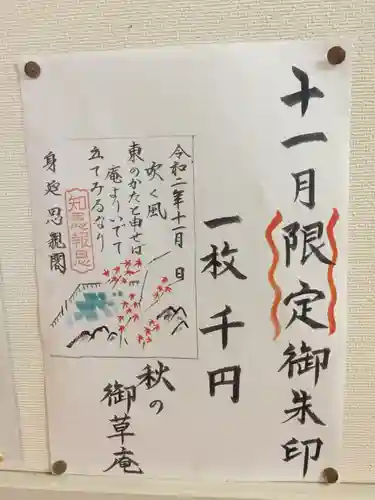 十一月限定御朱印
一枚千円
秋の
御草庵
令和二年十一月 日
吹く風
東のかたと由せば
庵よりいでて
立てみるなり
知恩報恩
身延 思親閣